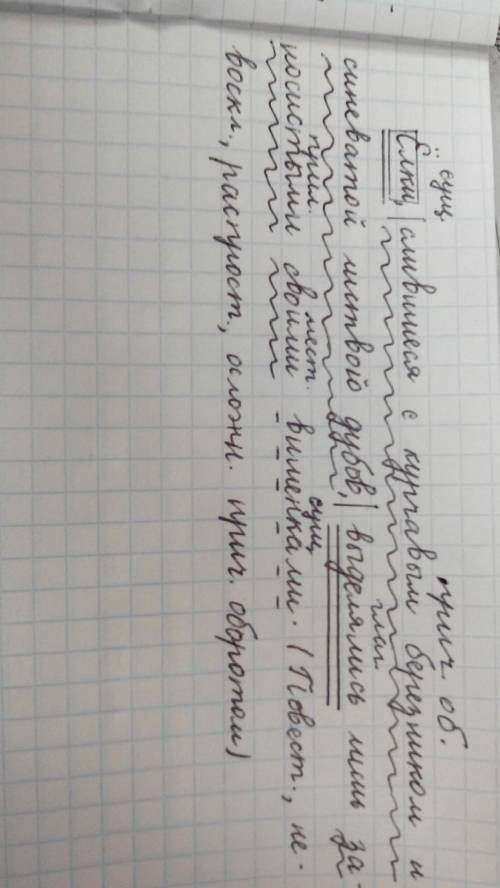 сущ. прич. об.
Ёлки, | слившиеся с курчавым березником и
глаг
синеватой листвой дубов, | выделялись лишь за-
прил. мест. сущ
носистыми своими вишенками. (Повест., не-
воскл., распрост., осложн. прич. оборотом)